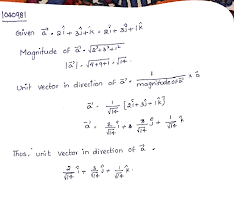 1040981
Given a⃗ = 2î + 3ĵ + k̂ = 2î + 3ĵ + 1k̂
Magnitude of a⃗ = √2²+3²+1²
|a⃗| = √4+9+1 = √14
Unit vector in direction of a⃗ = 1/magnitude of a⃗ × a⃗
a⃗ = 1/√14 [2î + 3ĵ + 1k̂]
a⃗ = 2/√14 î + 3/√14 ĵ + 1/√14 k̂
Thus, unit vector in direction of a⃗ =
2/√14 î + 3/√14 ĵ + 1/√14 k̂